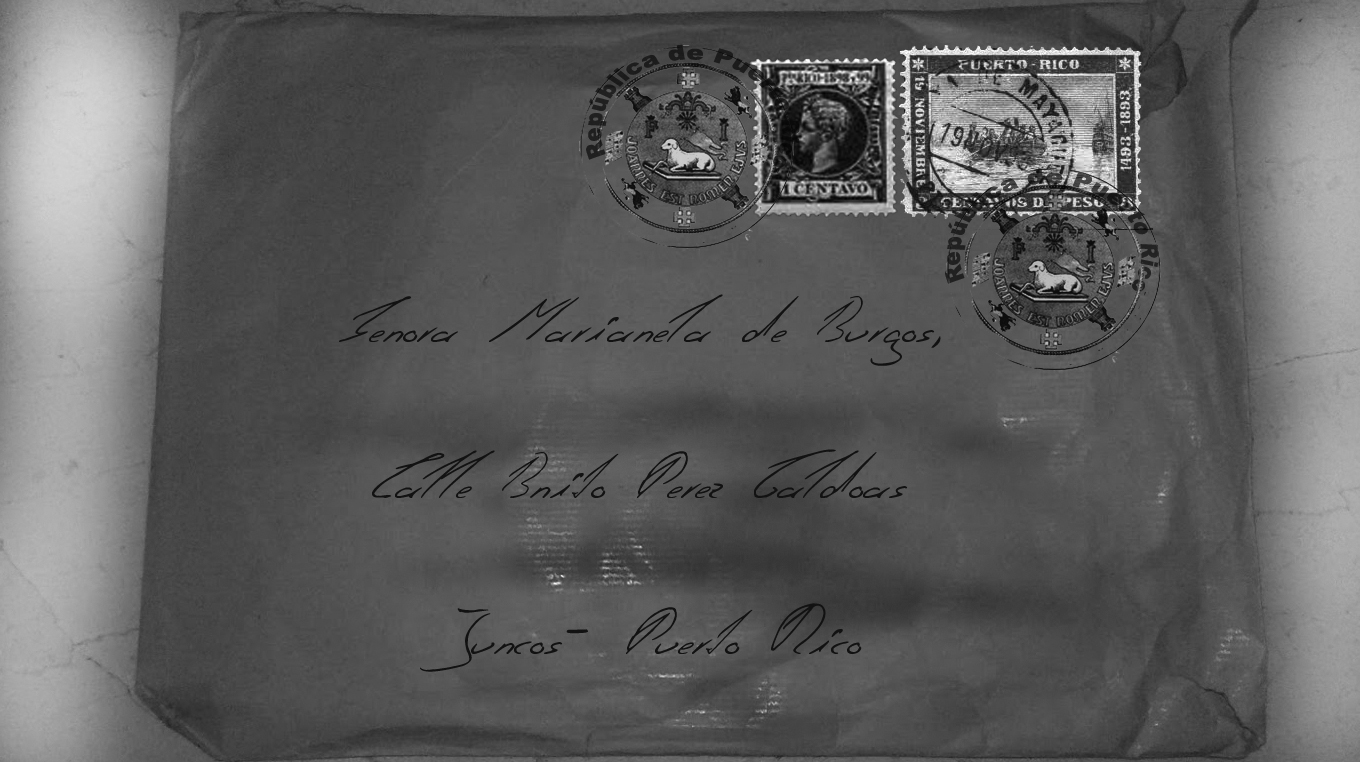 República de Pue
PUERTO-RICO
PTO RICO-1898-99
1 DE MAYAGUE
19 NOV
19 NOVIEMBRE
1493-1893
1 CENTAVO
CENTAVOS DE PESO
JOANNES EST NOMEN EJVS
República de Puerto Rico
F I
JOANNES EST NOMEN EJVS
Senora Marianela de Burgos,
Calle Bnito Perez Galdoas
Juncos- Puerto Rico